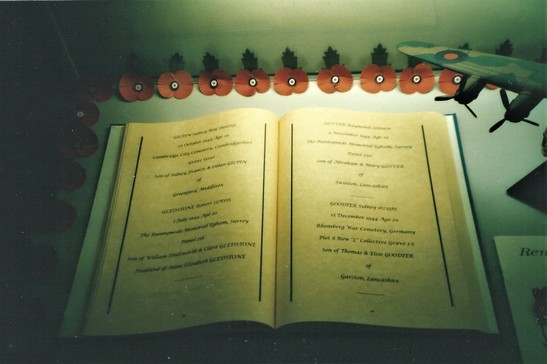 GILPIN Sidney
15 October 1944 Age 21
Cambridge City Cemetery, Cambridgeshire
Grave
Son of Sidney Francis & Lilian GILPIN
of
Greenford, Middlesex
GLEDSTONE Robert
1 July 1944 Age
The Runnymede Memorial Egham, Surrey
Panel
Son of William Duckworth & Clara GLEDSTONE
Husband of Annie Elizabeth GLEDSTONE
GLUTTER
2 November 1944 Age
The Runnymede Memorial Egham, Surrey
Panel
Son of Abraham & Mary
of
Swinton, Lancashire
GOODIER Sidney
12 December 1944 Age 20
Rheinberg War Cemetery, Germany
Plot 8 Row "L" Collective Grave
Son of Thomas & Elsie GOODIER
of
Garston, Lancashire